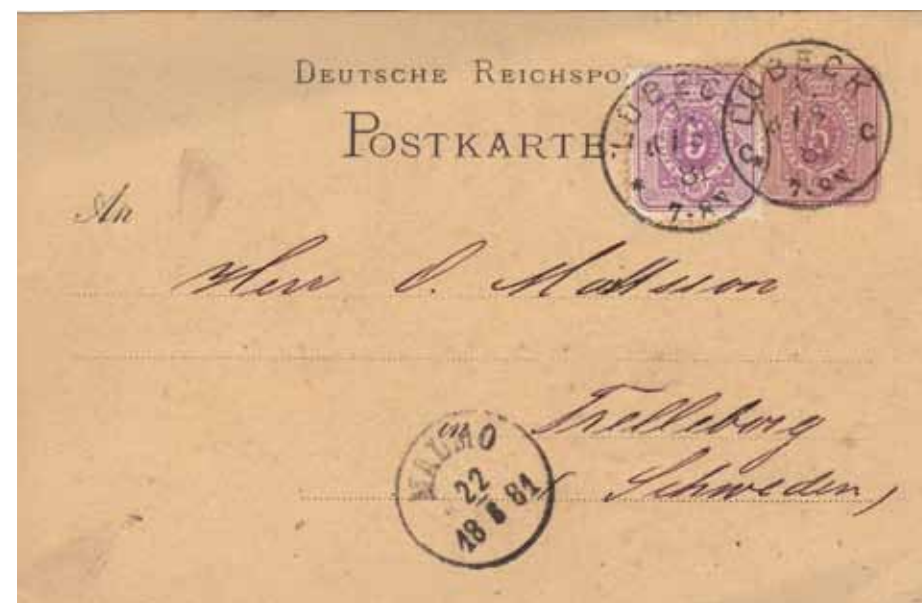 DEUTSCHE REICHSPO
POSTKARTE
LÜBECK
81
7-8N
LÜBECK
C C
8
7-8N
5
5
An
Herr O. Mattsson
Trelleborg
Schweden
MALMÖ
22
18 8 81